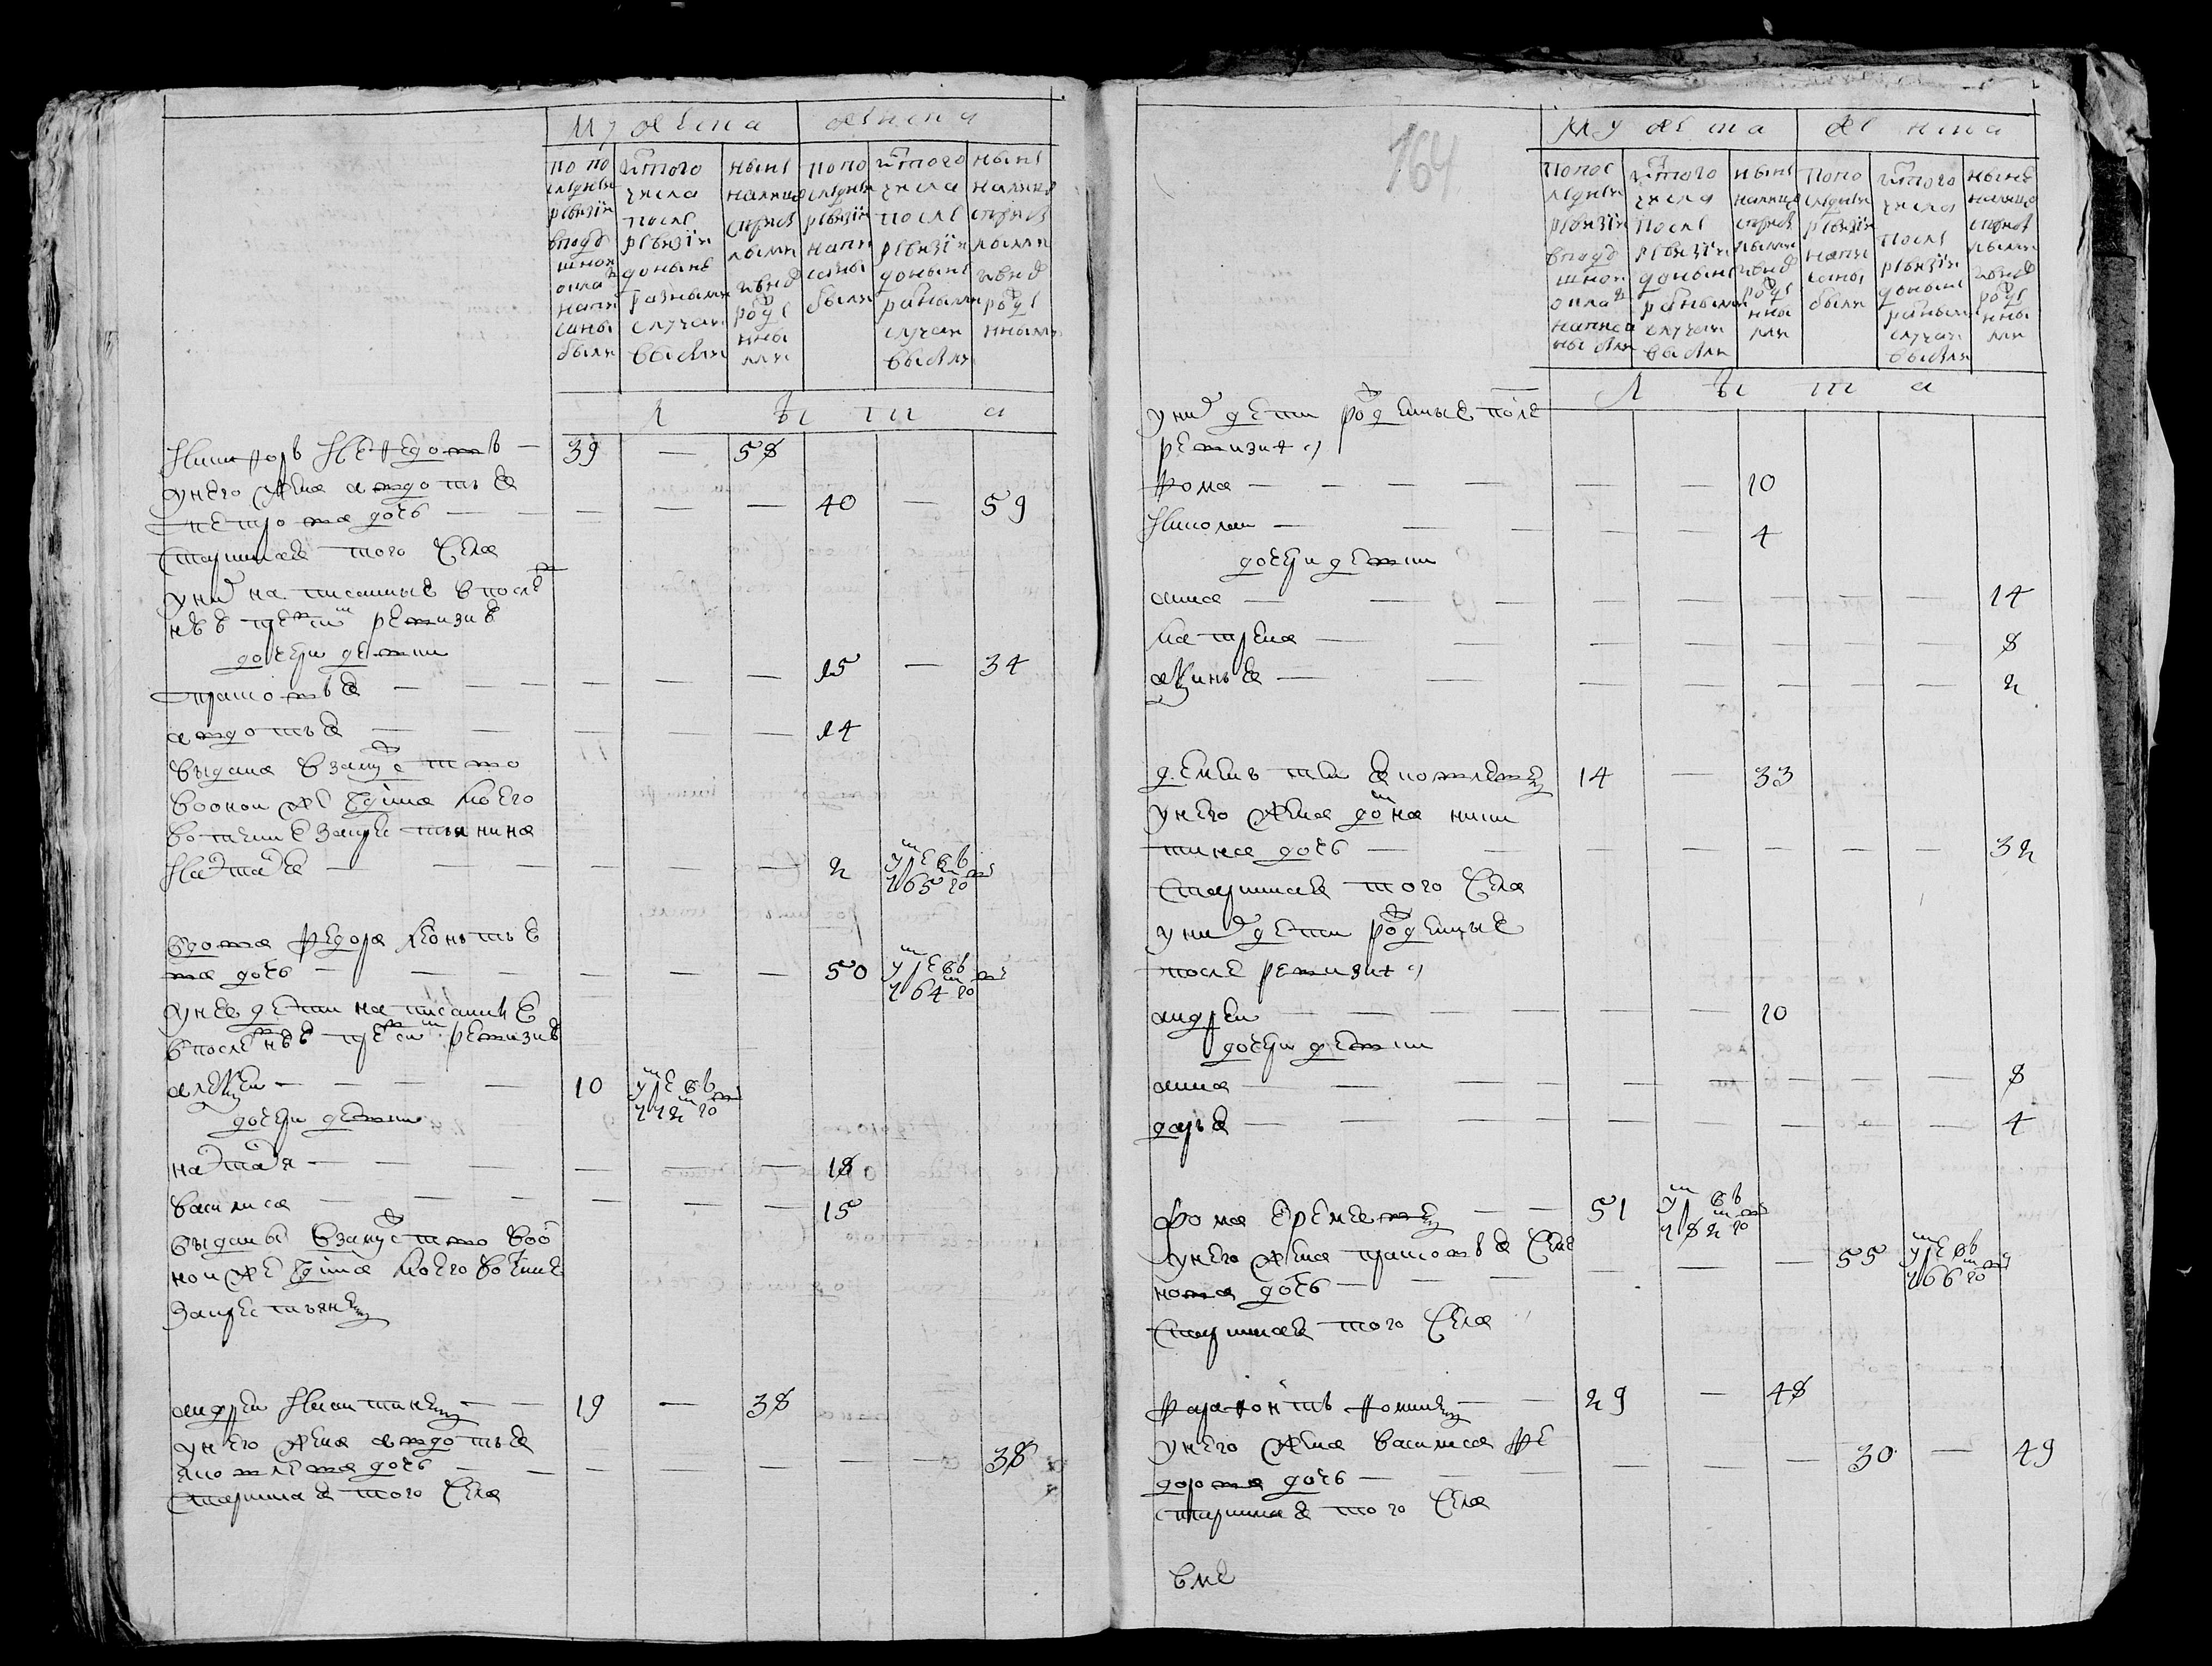 мужеска
женска
по по
следней
ревизiи
в подуш
шной
окла д
напи
саны
были
ис того
числа
после
ревизiи
до ныне
разными
случаи
выбыли
ныне
на лицо
с прибы
лыми
и вновь
рожде
нны
ми
по по
следней
ревизiи
напи
саны
были
ис того
числа
после
ревизiи
до ныне
разными
случаи
выбыли
ныне
на лицо
с прибы
лыми
и вновь
рожде
нными
л ѣ т а
Никифоръ Нефедовъ — 39 — 58
у него жена авдотья
петрова дочь — — — — — 40 — 59
старинная того села
у них написанные в после
ней третей ревизие
дочери девки
прасковья — — — — — 15 — 34
авдотья — — — — — 14
выдана в замужество
во оной же
вотчине за крестьянина
Настасья — — — — — 2 умре въ 765 го
вдова федора леонтье
ва дочь — — — — — 50 умре въ 764 го
у нее дети написание
в последней третей ревизие
алексеи — — — 10 умре въ 772 го
дочери девки
настасья — — — — — 18
василиса — — — — — 15
выданы в замужество во о
ной же вотчине
за крестьянех
андреи Никитинъ — — 19 — 38
у него жена авдотья
яковлева дочь — — — — — — 38
старинная того села
164
мужеска
женска
по пос
ледней
ревизiи
в подуш
шной
окла д
написа
ны были
ис того
числа
после
ревизiи
до ныне
разными
случаи
выбыли
ныне
на лицо
с прибы
лыми
и вновь
рожде
нны
ми
по по
следней
ревизiи
напи
саны
были
ис того
числа
после
ревизiи
до ныне
разными
случаи
выбыли
ныне
на лицо
с прибы
лыми
и вновь
рожде
нны
ми
л ѣ т а
у них дети рожденные после
ревизии
фома — — — — — — 10
Николаи — — — — — 4
дочери девки
анна — — — — — — 14
матрена — — — — — — 8
аксинья — — — — — — 2
дементеи яковлевъ 14 — 33
у него жена домна ники
тина дочь — — — — — — 32
старинная того села
у них дети рожденные
после ревизии
андреи — — — — — 10
дочери девки
анна — — — — — — 8
дарья — — — — — — 4
фома еремеевъ — — 51 умре въ 782 го
у него жена прасковья семе
нова дочь — — — — — 55 умре въ 766 го
старинная того села
фарафонтъ фоминъ — — 29 — 48
у него жена василиса фе
дорова дочь — — — — 30 — 49
старинная того села
вме